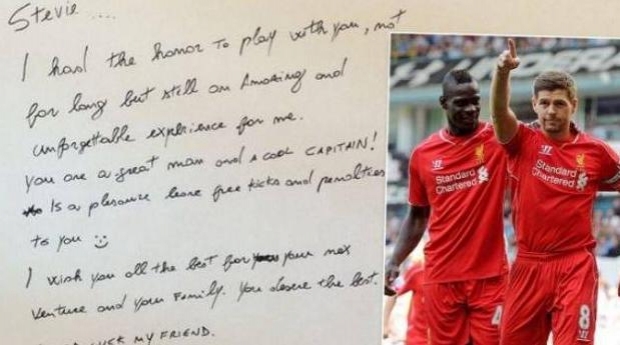 Stevie ....
I had the honor to play with you, not
for long but still an Amazing and
unforgettable experience for me.
you are a great man and a cool CAPITAIN!
Is a pleasure leave free kicks and penalties
to you
I wish you all the best for your nex
Venture and your Family. You deserve the best.
MY FRIEND.
Standard
Chartered
Standard
Chartered
4
8